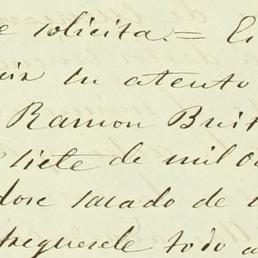 e solicita.= En
su atento
Ramon Buit
siete de mil o
dose sacado de
treguesele todo a